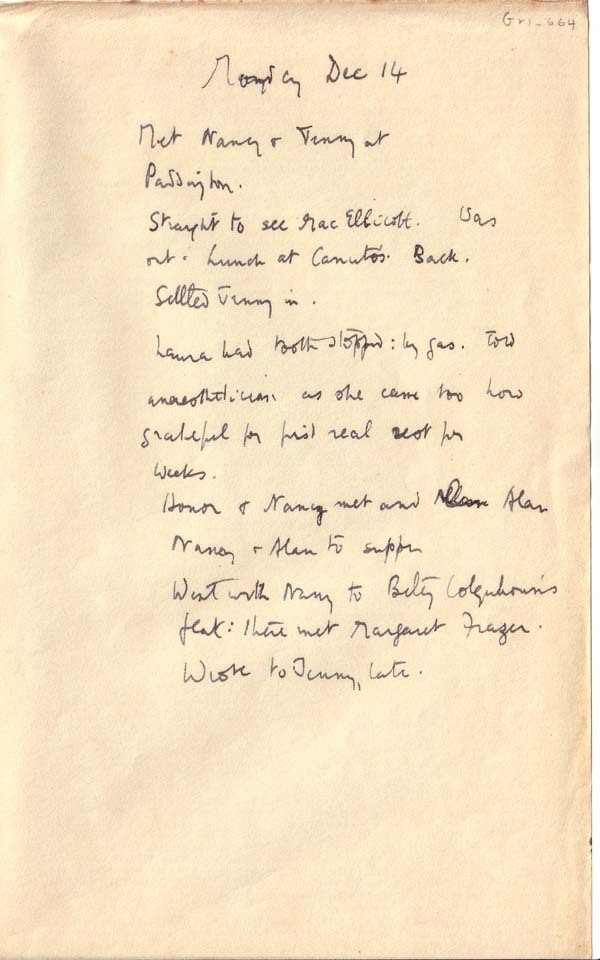 Gr1-664
Monday Dec 14
Met Nancy & Jenny at
Paddington.
Straight to see MacEllicott. Was
out. Lunch at Canuto's. Back.
Settled Jenny in.
Laura had tooth stopped: by gas. Told
anaesthetician as she came too how
grateful for first real rest for
weeks.
Honor & Nancy met and Alan
Nancy & Alan to supper
Went with Nancy to Betty Colquhoun's
flat: there met Margaret Frazer.
Wrote to Jenny, late.